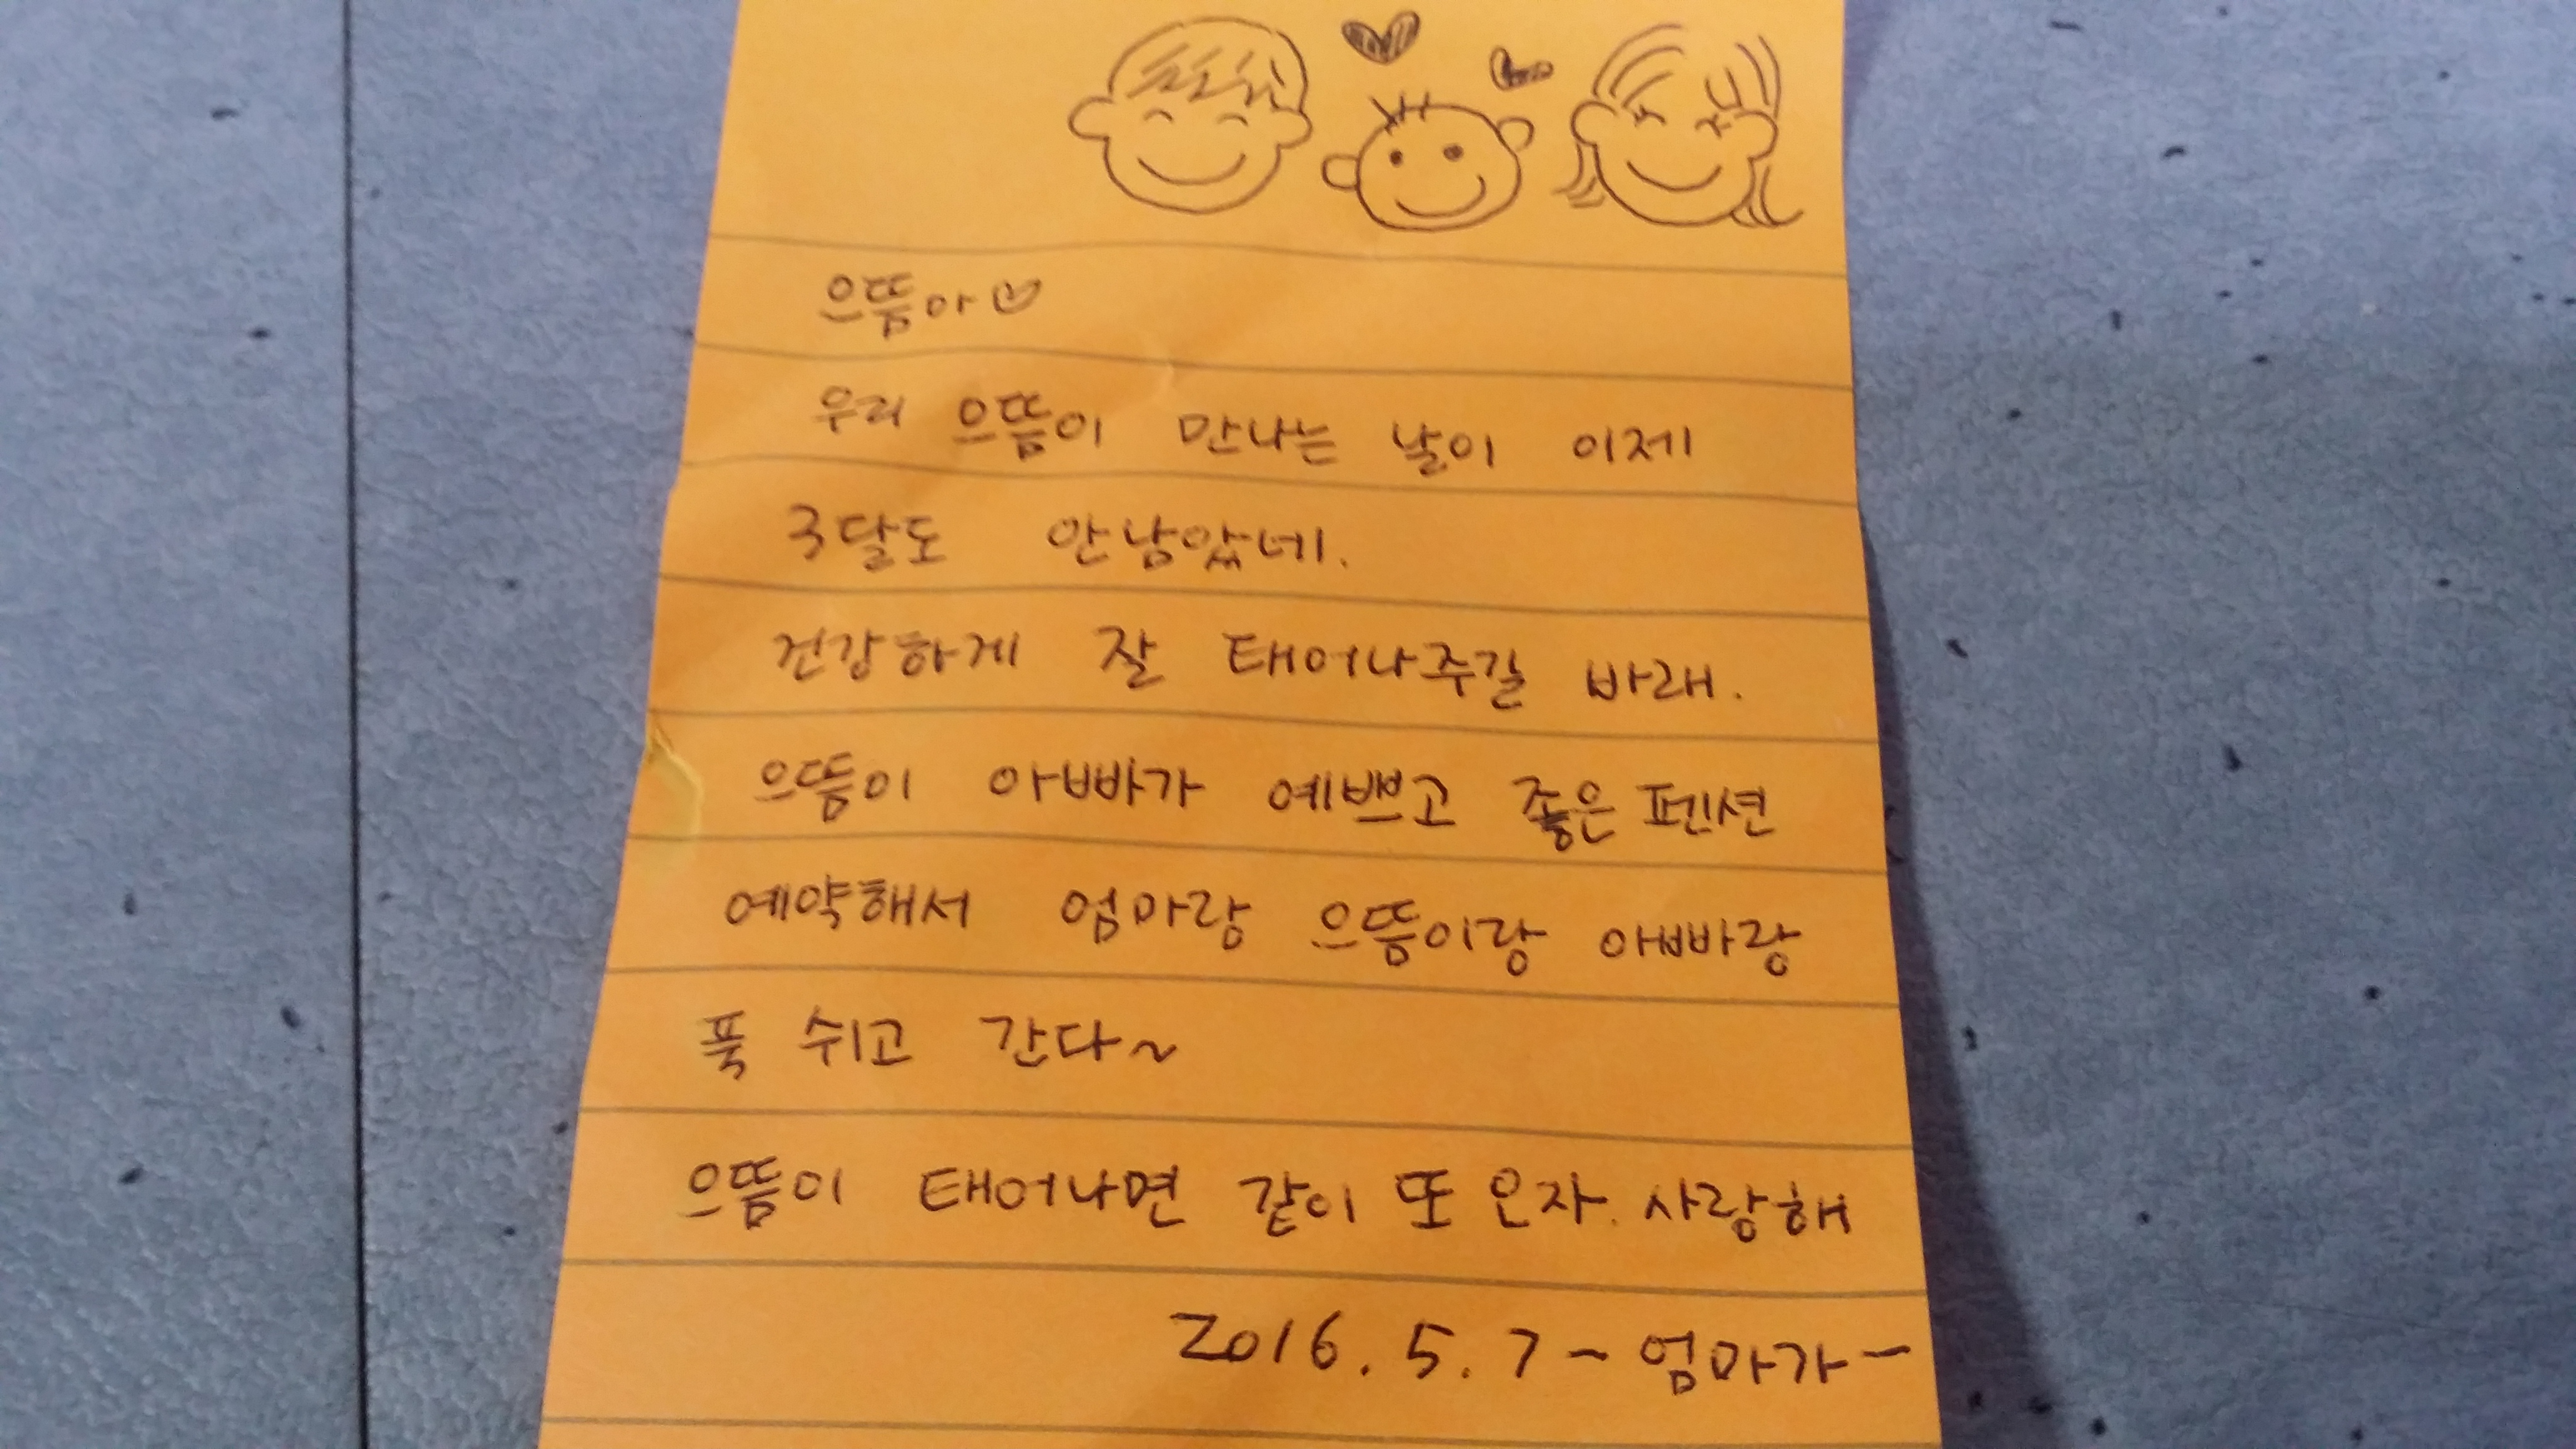 으뜸아♡
우리 으뜸이 만나는 날이 이제
3달도 안남았네.
건강하게 잘 태어나주길 바래.
으뜸이 아빠가 예쁘고 좋은 펜션
예약해서 엄마랑 으뜸이랑 아빠랑
푹 쉬고 간다~
으뜸이 태어나면 같이 또 오자. 사랑해
2016. 5. 7 - 엄마가 -